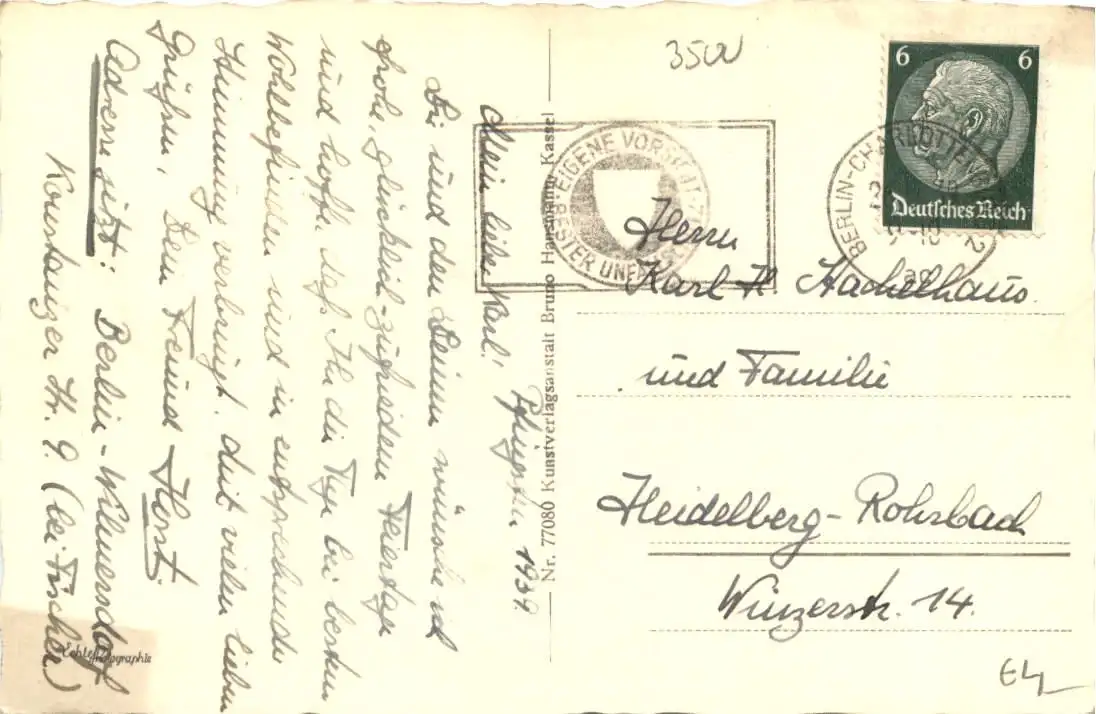 Mein lieber Karl! Pfingsten 1939.
Dir und den Deinen wünsche ich
frohe, glücklich-zufriedene Feiertage
und hoffe, daß Ihr die Tage bei bestem
Wohlbefinden und in entsprechender
Stimmung verbringt. Mit vielen lieben
Grüßen, Dein Freund Horst.
Adresse jetzt: Berlin-Wilmersdorf
Konstanzer Str. 9. (bei Fischer)
Echte Photographie
Nr. 77080 Kunstverlagsanstalt Bruno Hansmann, Kassel
3500
EIGENE VORSICHT
BESTER UNFALLSCHUTZ
BERLIN-CHARLOTTENBURG 2
6 6
Deutsches Reich
Herrn
Karl H. Stachelhaus
und Familie
Heidelberg-Rohrbach
Winzerstr. 14.